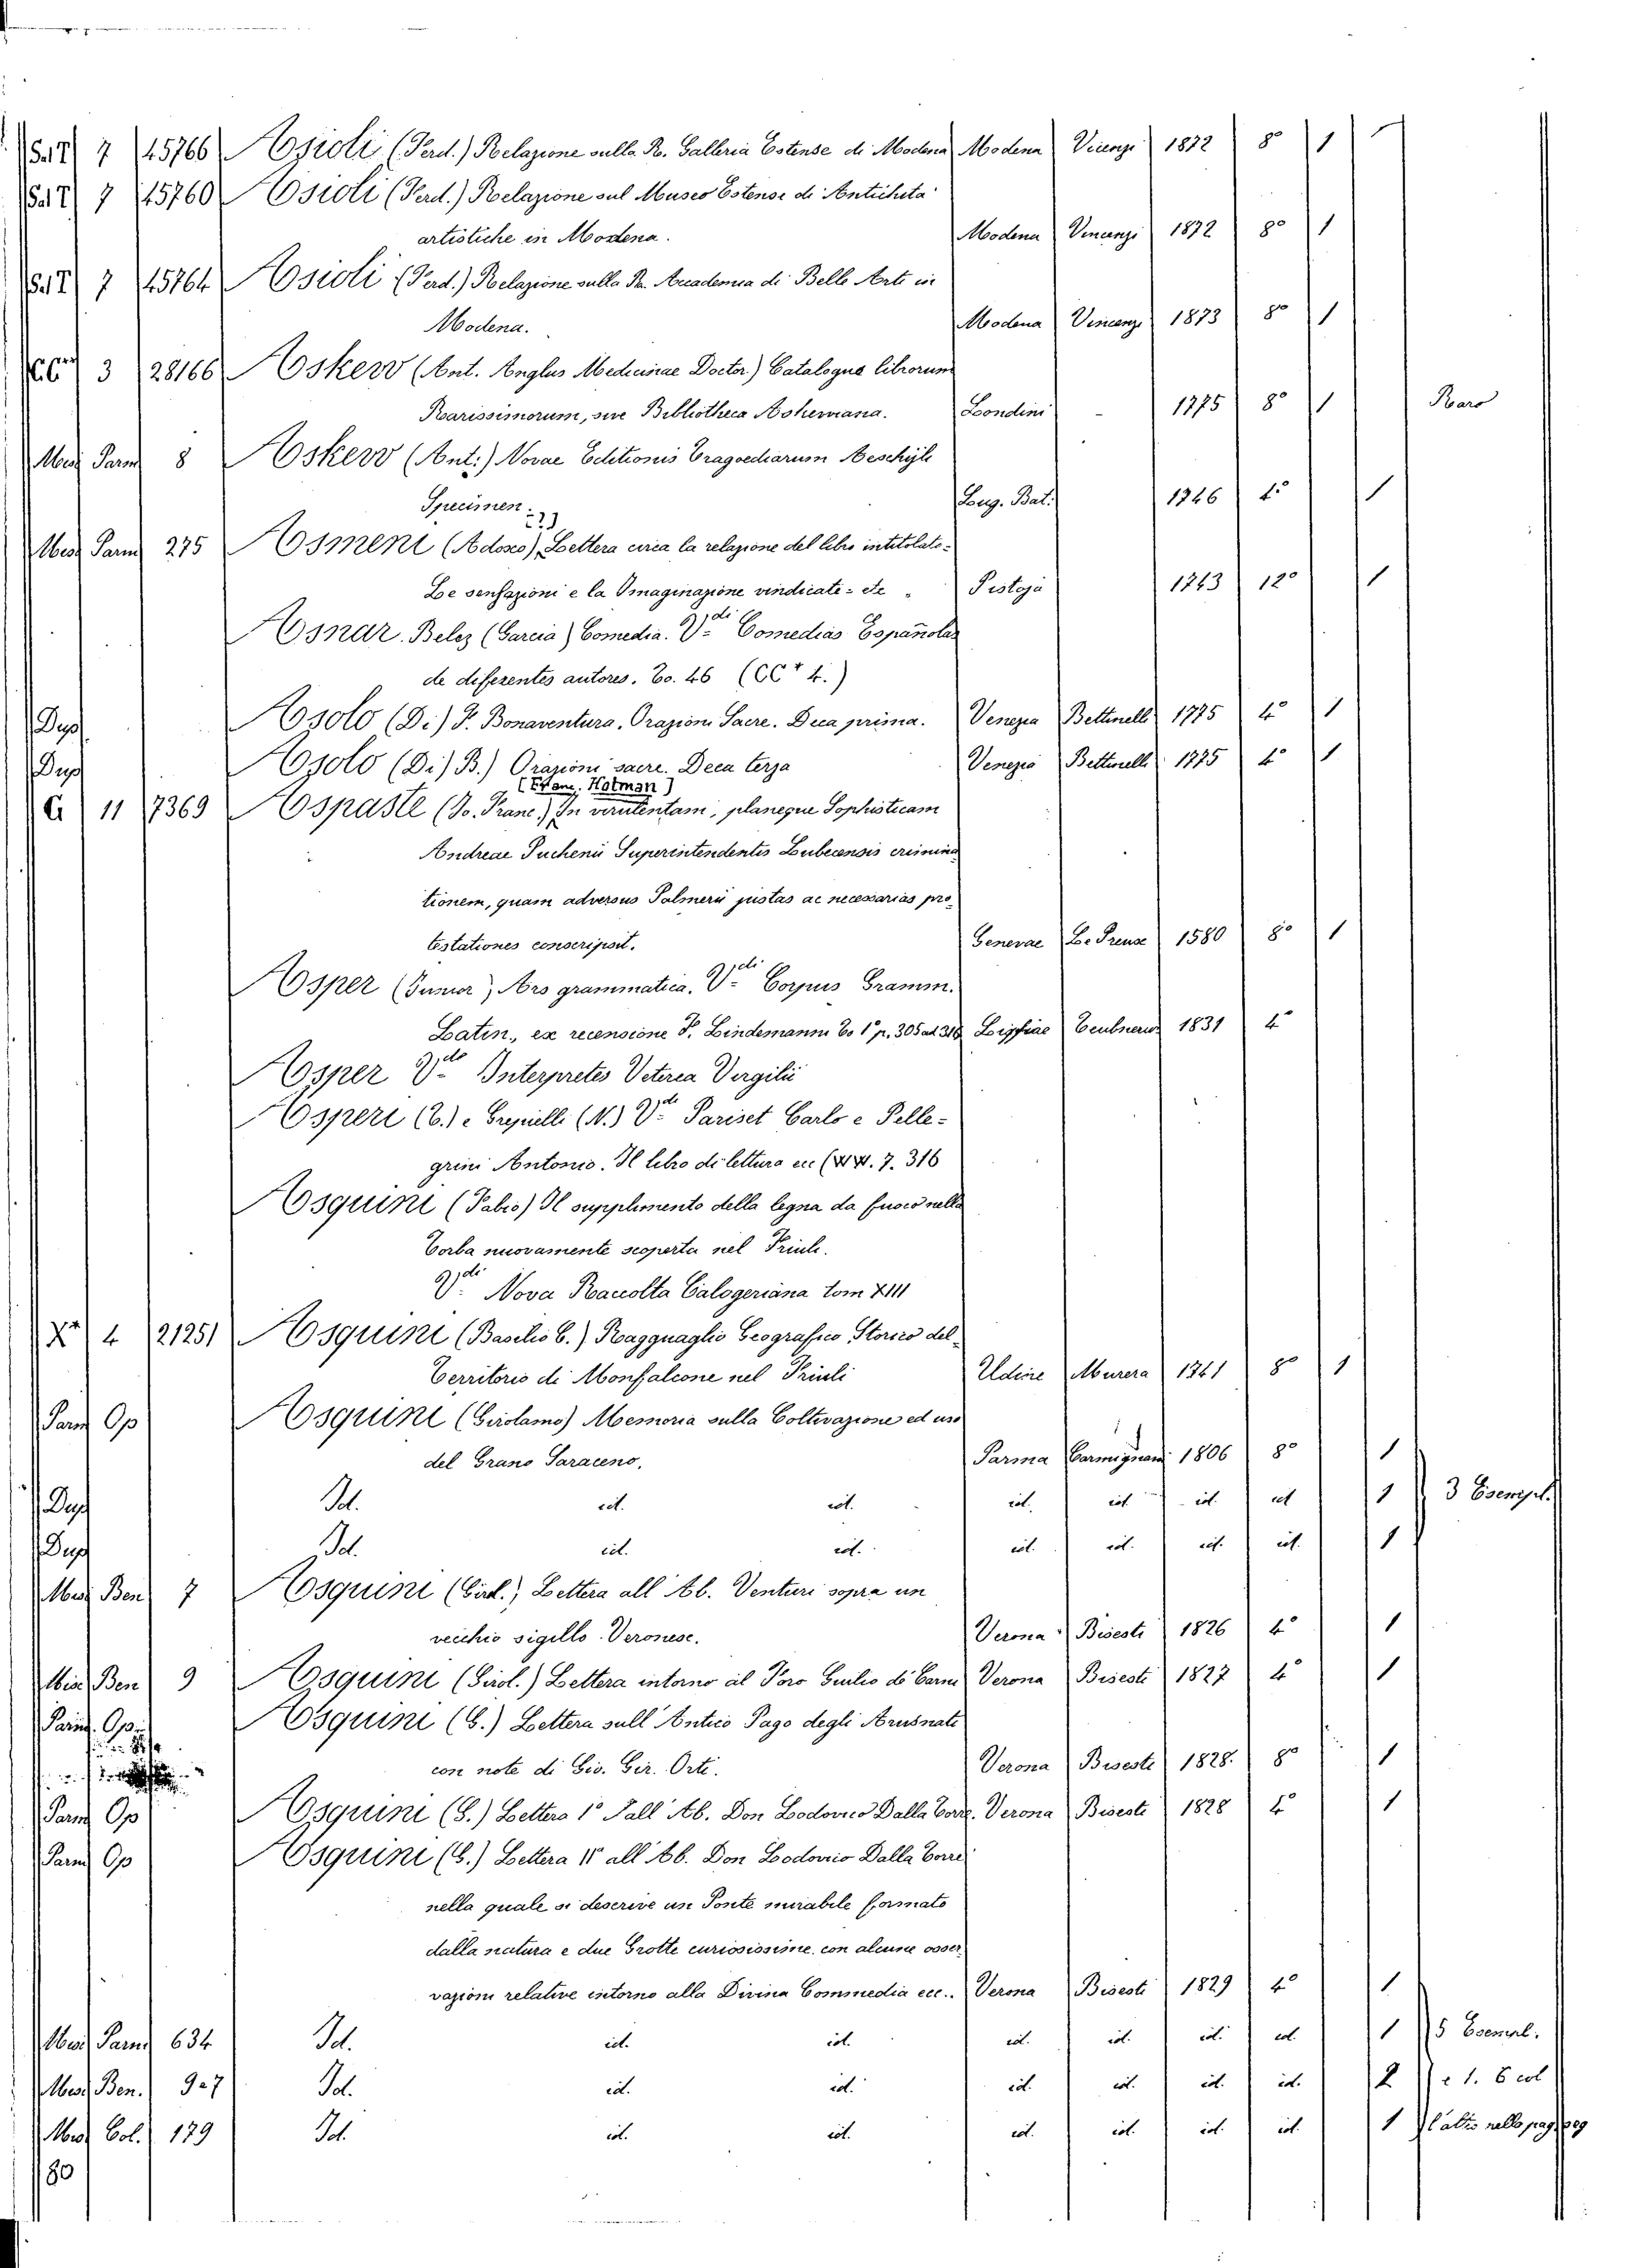 Sal. 7 45766 Asioli (Ferd.) Relazione sulla R. Galleria Estense di Modena Modena Vicenzi 1872 8° 1
Sal. 7 45760 Asioli (Ferd.) Relazione sul Museo Estense di Antichita
artistiche in Modena. Modena Vincenzi 1872 8° 1
Sal. 7 45764 Asioli (Ferd.) Relazione sulla R. Accademia di Belle Arti in
Modena. Modena Vincenzi 1873 8° 1
3 28166 Askew (Ant. Anglus Medicinae Doctor) Catalogus librorum
Rarissimorum, sive Bibliotheca Askeviana. Londini - 1775 8° 1 Raro
Misc Parm 8 Askew (Ant.) Novae Editionis Tragoediarum Aeschyli
Specimen. Lug. Bat. 1746 4° 1
Misc Parm 275 Asmeni (Adosio) Lettera circa la relazione del libro intitolato-
Le sensazioni e la Imaginazione vindicate- etc " Pistoja 1743 12° 1
Asnar. Belez (Garcia) Comedia. V.di Comedias Españolas
de diferentes autores. To. 46 (CC+ 4.)
Dup Asolo (Di) F. Bonaventura. Orazioni Sacre. Deca prima. Venezia Bettinelli 1775 4° 1
Dup Asolo (Di) B.) Orazioni sacre. Deca terza Venezia Bettinelli 1775 4° 1
(Franc. Hotman)
G 11 7369 Aspaste (Jo. Franc.) In virulentam, planeque Sophisticam
Andreae Puchenii Superintendentis Lubecensis crimina
tionem, quam adversus Palmerii justas ac necessarias pro,
testationes conscripsit. Genevae Le Preuse 1580 8° 1
Asper (Junior) Ars grammatica. V.di Corpus Gramm.
Latin., ex recensione F. Lindemanni To 1° p. 305 ad 318 Lipsiae Teubnerus 1831 4°
Asper V.do Interpretes Veteres Vergilii
Asperi (C.) e Crepielli (N.) V.di Pariset Carlo e Pelle-
grini Antonio. Il libro di lettura ecc (WW. 7. 316
Asquini (Fabio) Il supplimento della legna da fuoco nella
Torba nuovamente scoperta nel Friuli.
V.di Nova Raccolta Calogeriana tom XIII
X 4 21251 Asquini (Basilio C.) Ragguaglio Geografico Storico del
Territorio di Monfalcone nel Friuli Udine Murera 1741 8° 1
Parm Op Asquini (Girolamo) Memoria sulla Coltivazione ed uso
del Grano Saraceno. Parma Carmignani 1806 8° 1
Dup Id. id. id. id. id. id. id 1 3 Esempl.
Dup Id. id. id. id. id. id. id. 1
Misc Ben 7 Asquini (Girol.) Lettera all Ab. Venturi sopra un
vecchio sigillo Veronese. Verona Bisesti 1826 4° 1
Misc Ben 9 Asquini (Girol.) Lettera intorno al Foro Giulio de' Carni Verona Bisesti 1827 4° 1
Parm. Op. Asquini (G.) Lettera sull Antico Pago degli Arusnati
con note di Gio. Gir. Orti. Verona Bisesti 1828. 8° 1
Parm Op Asquini (G.) Lettera 1° all Ab. Don Lodovico Dalla Torre. Verona Bisesti 1828 4° 1
Parm Op Asquini (G.) Lettera II° all Ab. Don Lodovico Dalla Torre
nella quale si descrive un Ponte mirabile formato
dalla natura e due Grotte curiosissime. con alcune osser,
vazioni relative intorno alla Divina Commedia ecc.. Verona Bisesti 1829 4° 1
Misc Parm 634 Id. id. id. id. id. id. id. 1 5 Esempl.
Misc Ben. 9 e 7 Id. id. id. id. id. id. id. 2
Misc Col. 179 Id. id. id. id. id. id. id. 1 l'altro nella pag seg
80